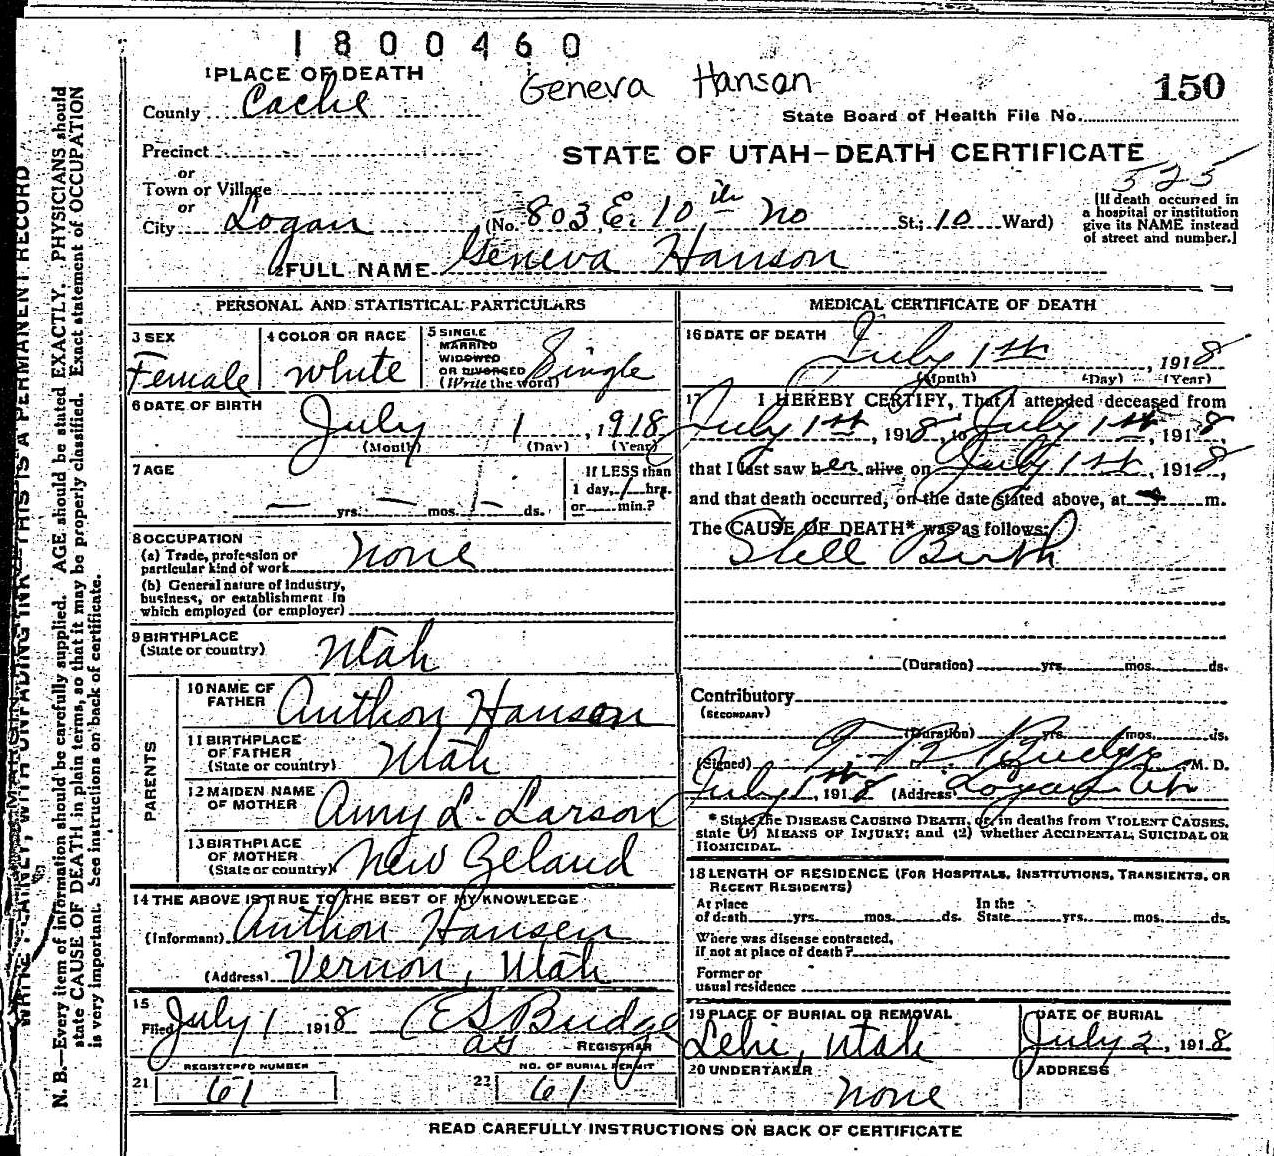 1800460
1 PLACE OF DEATH
Geneva Hanson
150
County Cache
State Board of Health File No.
Precinct
STATE OF UTAH—DEATH CERTIFICATE
or
Town or Village
525
or
City Logan (No. 803 E. 10th No St.; 10 Ward)
[If death occurred in
a hospital or institution
give its NAME instead
of street and number.]
2 FULL NAME Geneva Hanson
PERSONAL AND STATISTICAL PARTICULARS
3 SEX
Female
4 COLOR OR RACE
White
5 SINGLE
MARRIED
WIDOWED
OR DIVORCED
(Write the word)
Single
6 DATE OF BIRTH
July 1, 1918
(Month) (Day) (Year)
7 AGE
— yrs. — mos. 1 ds.
If LESS than
1 day, 1 hrs.
or min.?
8 OCCUPATION
(a) Trade, profession or
particular kind of work None
(b) General nature of industry,
business, or establishment in
which employed (or employer)
9 BIRTHPLACE
(State or country) Utah
PARENTS
10 NAME OF
FATHER Anthon Hanson
11 BIRTHPLACE
OF FATHER
(State or country) Utah
12 MAIDEN NAME
OF MOTHER Amy L. Larson
13 BIRTHPLACE
OF MOTHER
(State or country) New Zeland
14 THE ABOVE IS TRUE TO THE BEST OF MY KNOWLEDGE
(Informant) Anthon Hansen
(Address) Vernon, Utah
15
Filed July 1 1918 E S Budge
REGISTRAR
REGISTERED NUMBER
21 61
NO. OF BURIAL PERMIT
22 61
MEDICAL CERTIFICATE OF DEATH
16 DATE OF DEATH July 1st, 1918
(Month) (Day) (Year)
17 I HEREBY CERTIFY, That I attended deceased from
July 1st, 1918, to July 1st, 1918,
that I last saw her alive on July 1st, 1918,
and that death occurred, on the date stated above, at m.
The CAUSE OF DEATH* was as follows:
Still Birth
(Duration) yrs. mos. ds.
Contributory
(SECONDARY)
(Duration) yrs. mos. ds.
(Signed) T. B. Budge M. D.
July 1st, 1918 (Address) Logan Utah
* State the DISEASE CAUSING DEATH, or, in deaths from VIOLENT CAUSES,
state (1) MEANS OF INJURY; and (2) whether ACCIDENTAL, SUICIDAL OR
HOMICIDAL.
18 LENGTH OF RESIDENCE (FOR HOSPITALS, INSTITUTIONS, TRANSIENTS, OR
RECENT RESIDENTS)
At place
of death yrs. mos. ds.
In the
State yrs. mos. ds.
Where was disease contracted,
if not at place of death?
Former or
usual residence
19 PLACE OF BURIAL OR REMOVAL
Lehi, Utah
DATE OF BURIAL
July 2, 1918
20 UNDERTAKER
None
ADDRESS
READ CAREFULLY INSTRUCTIONS ON BACK OF CERTIFICATE
WRITE PLAINLY, WITH UNFADING INK—THIS IS A PERMANENT RECORD
N. B.—Every item of information should be carefully supplied. AGE should be stated EXACTLY. PHYSICIANS should
state CAUSE OF DEATH in plain terms, so that it may be properly classified. Exact statement of OCCUPATION
is very important. See instructions on back of certificate.